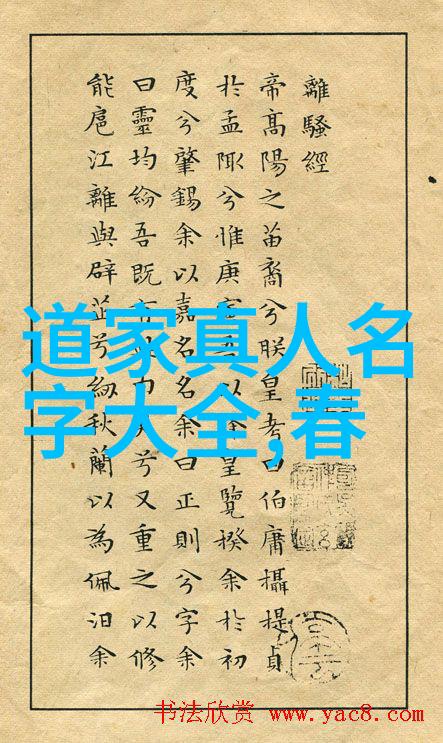 離騷經
帝高陽之苗裔兮朕皇考曰伯庸攝提貞
於孟陬兮惟庚以皇覽揆余於初
度兮肇錫余以嘉名名余曰正則兮字余
曰靈均紛吾既兮又重之以修
能扈江離與辟芷兮紉秋蘭以為佩汩余
道家真人名
字大全,春
书法欣赏 www.yac8.com